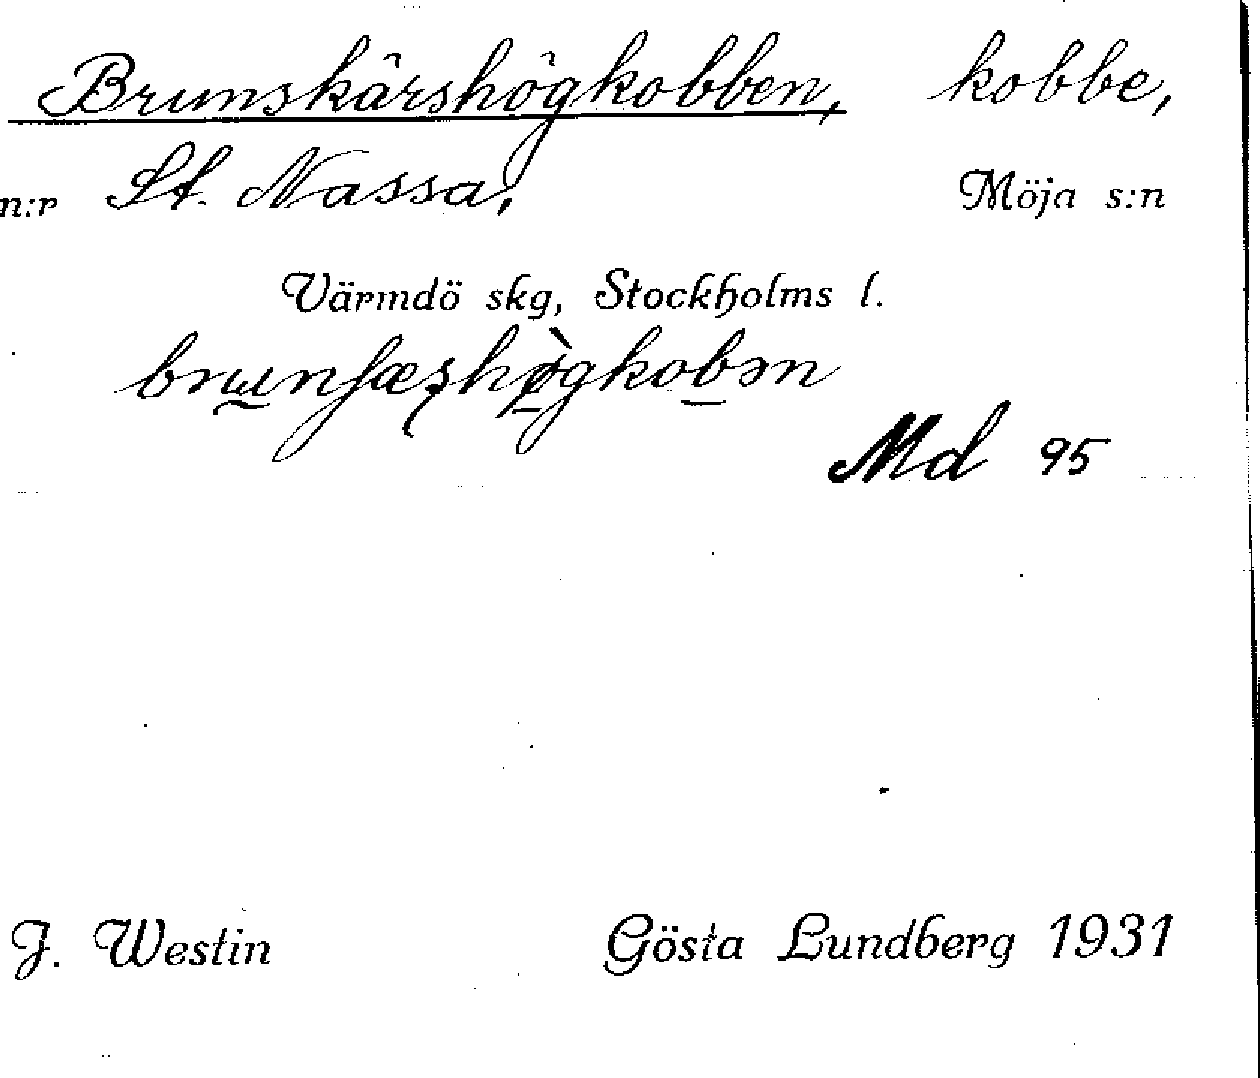 Brunskärshögkobben, kobbe,
n:r St. Nassa, Möja s:n
Värmdö skg, Stockholms l.
Md 95
J. Westin Gösta Lundberg 1931